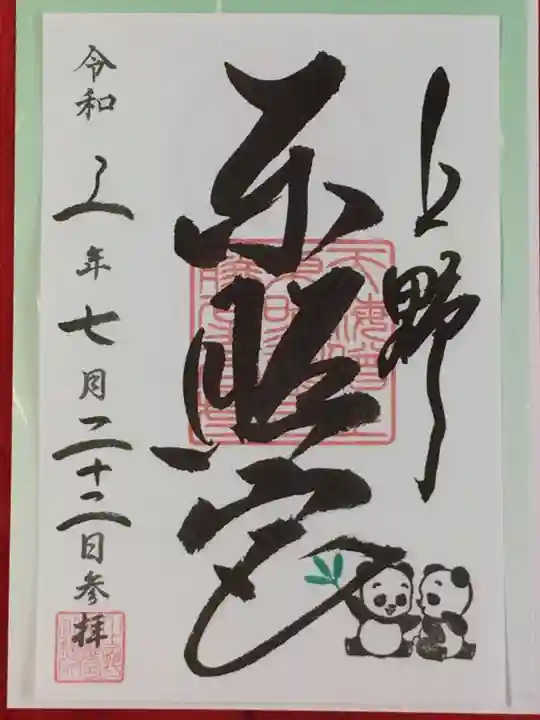 上野
東照宮
令和三年七月二十二日参拝